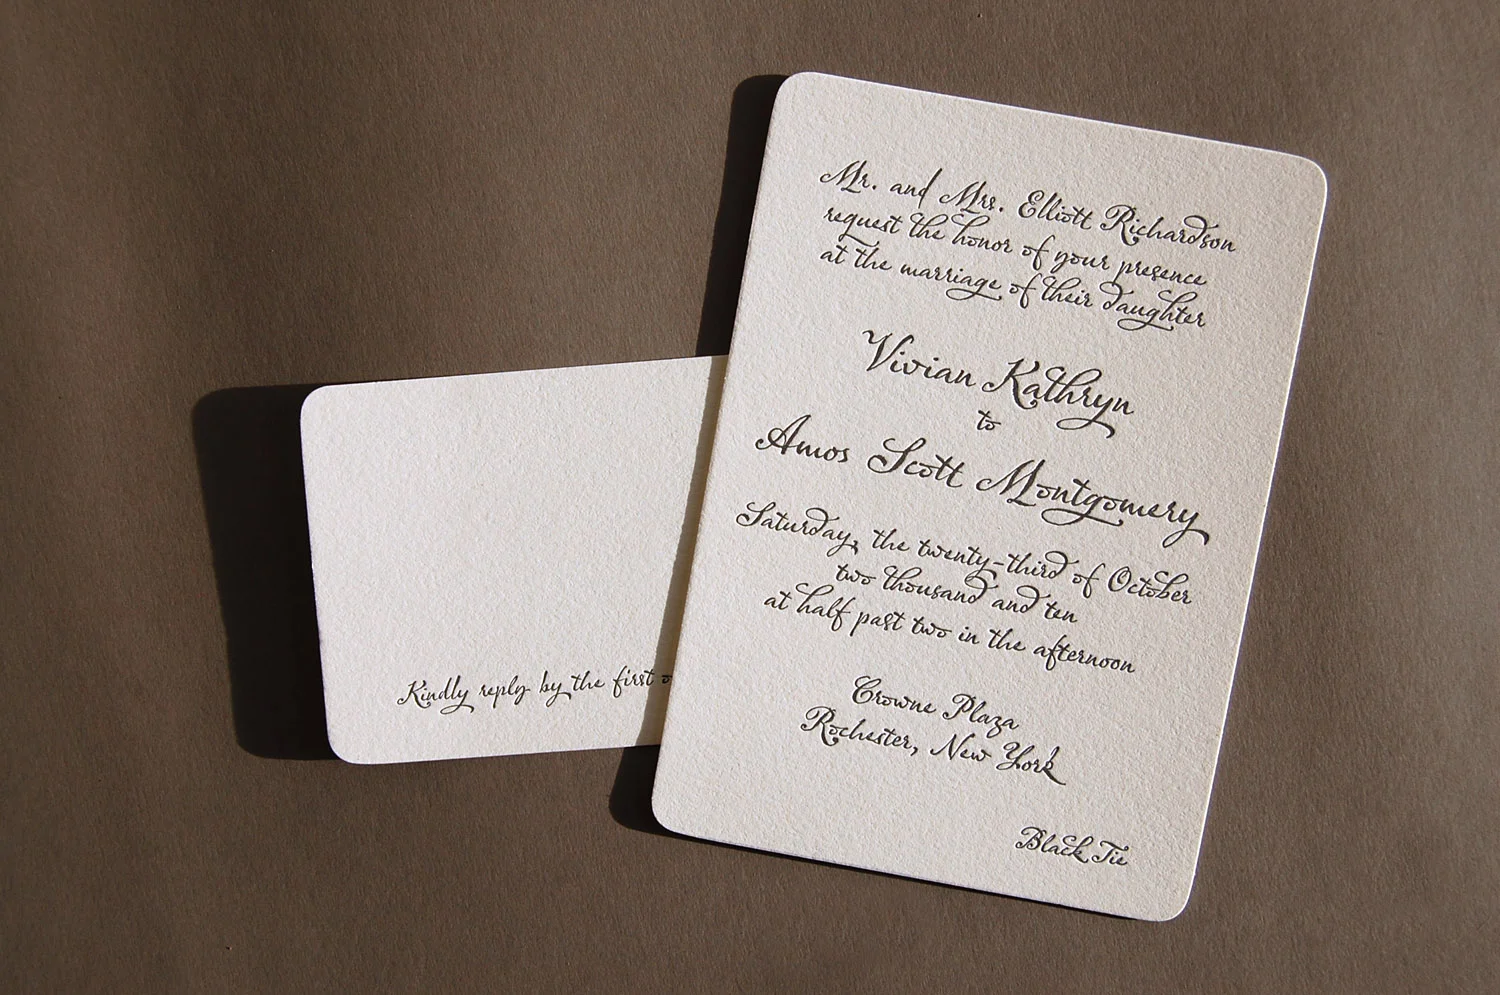 Mr. and Mrs. Elliott Richardson
request the honor of your presence
at the marriage of their daughter
Vivian Kathryn
to
Amos Scott Montgomery
Saturday, the twenty-third of October
two thousand and ten
at half past two in the afternoon
Crowne Plaza
Rochester, New York
Black Tie
Kindly reply by the first